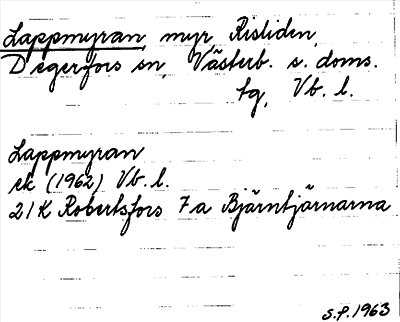 Lappmyran, myr, Risliden,
Degerfors sn, Västerb. s. doms.
tg, Vb. l.
Lappmyran
ek (1962) Vb. l.
21K Robertsfors 7a Bjärntjärnarna
S.P. 1963